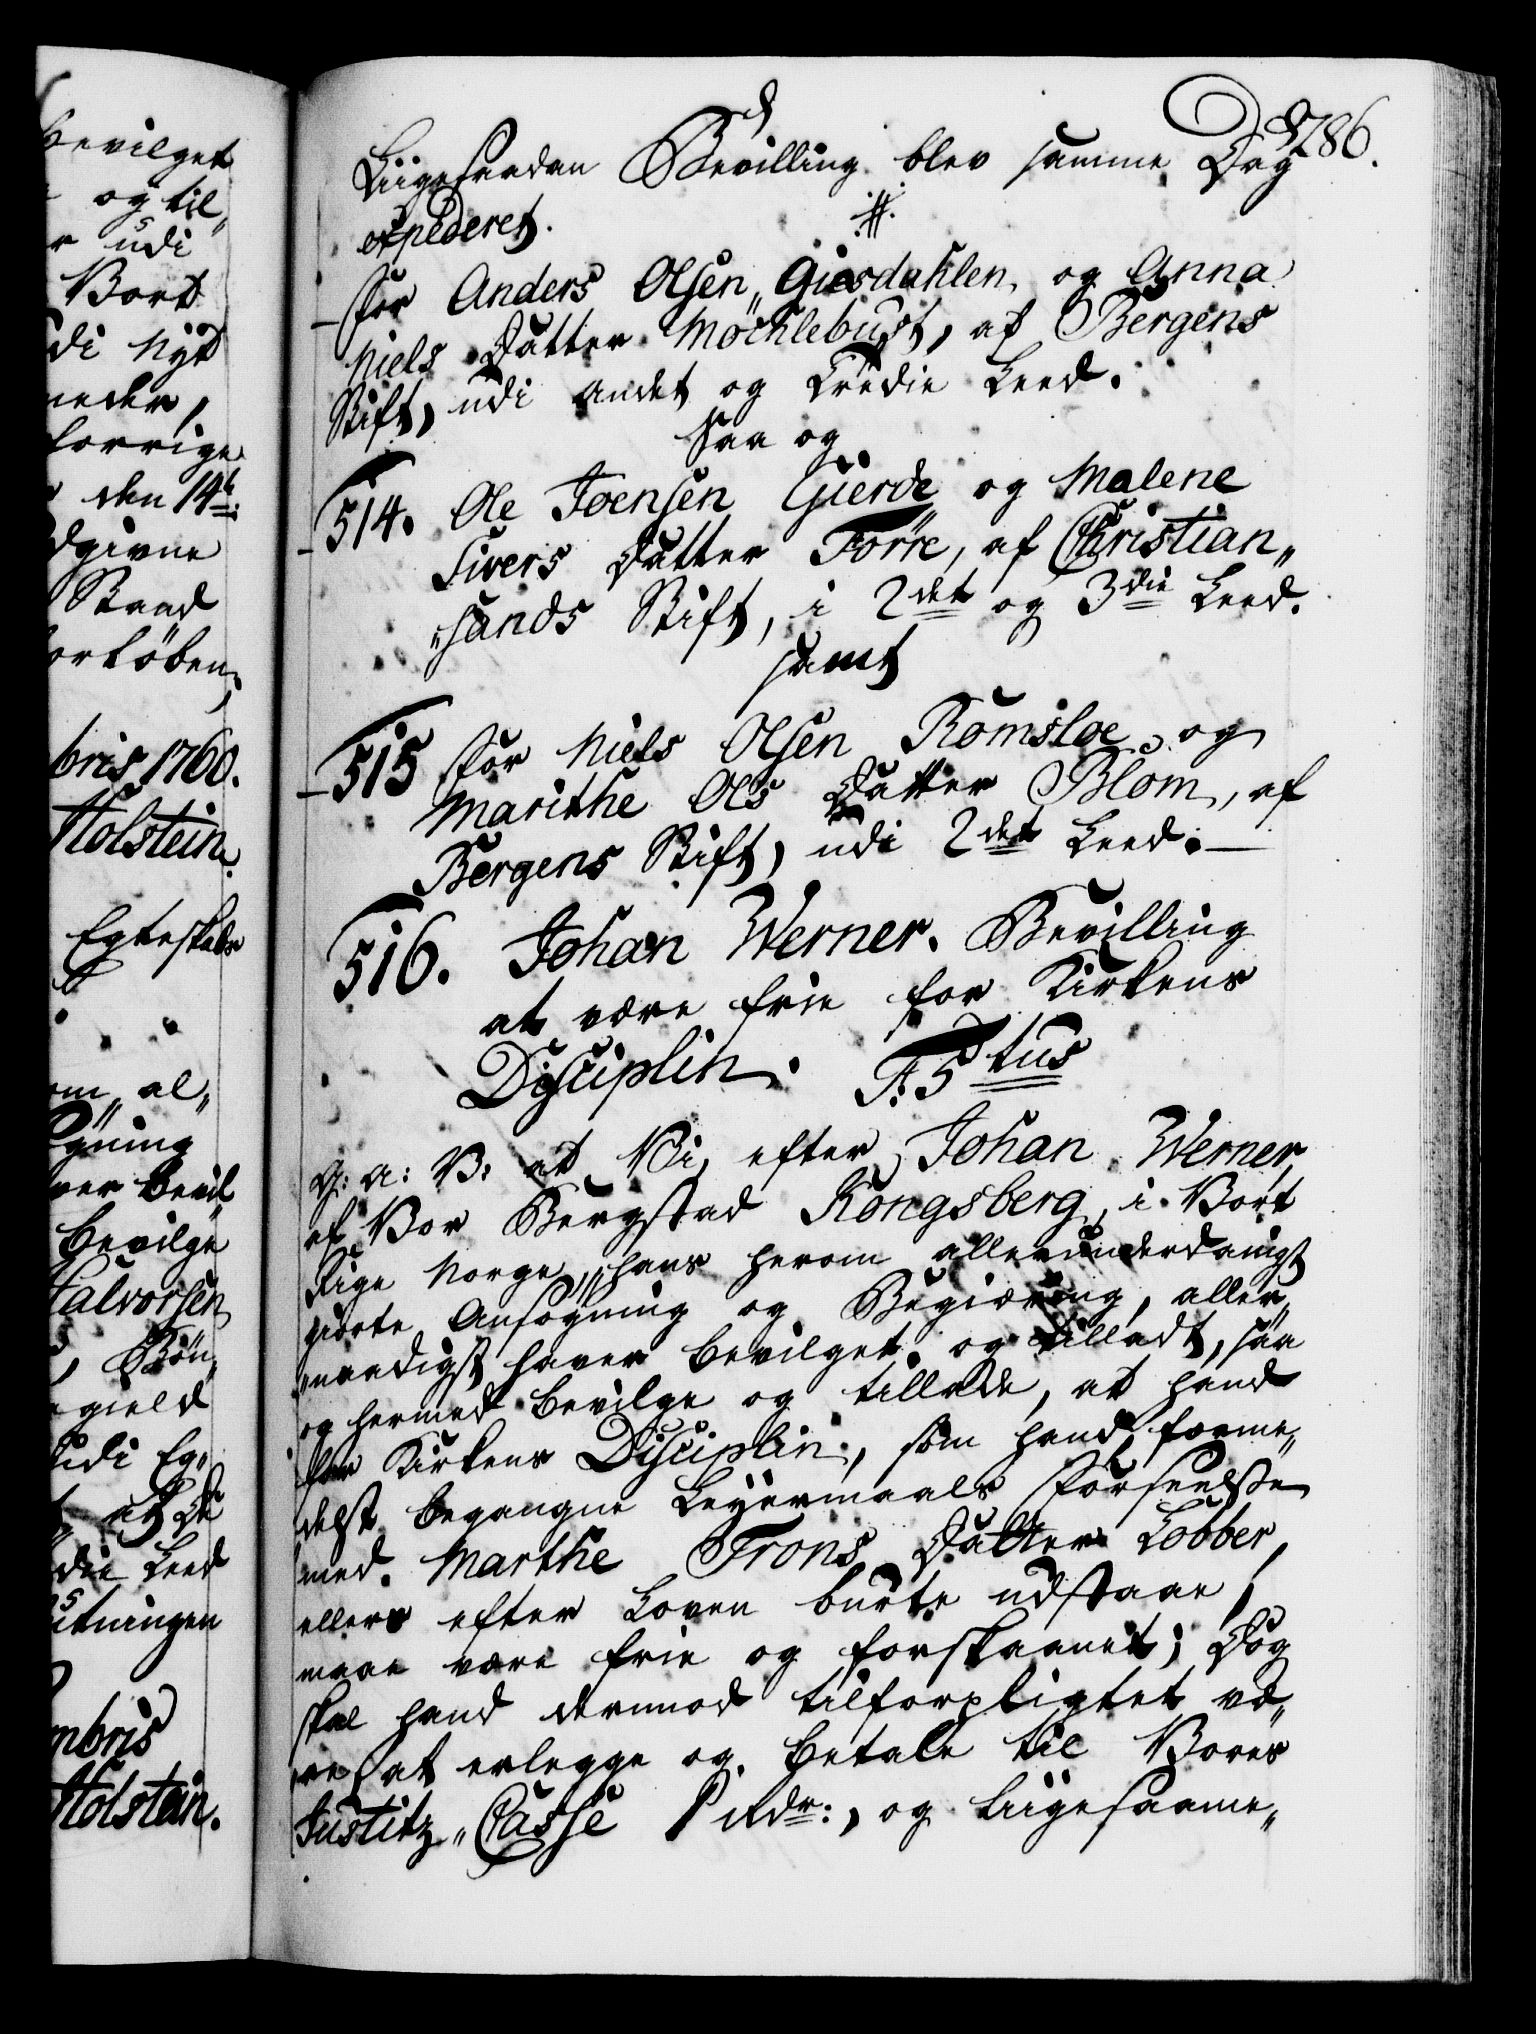 bevilget
og til„
udi
Vort
di Nyt
neder,
forrige
den 14de
dgivne
Stand
orkøben,
bris 1760.
Holstein.
Egteskab
om al„
gning
ver bevil
bevilge
Halvorsen
, Bøn,
gield
udi Eg„
at de
die Leed
utningen
mbris
Holstein.
286.
Liigesaadan Bevilling blev samme Dag
expederet.
for Anders Olsen „Giesdahlen, og Anna
Niels Datter Möchlebust, af Bergens
Stift, udi andet og tredie Leed.
Saa og
514. Ole Joensen Gierde og Malene
Sivers Datter Torre, af Christian„
„sands Stift, i 2det og 3die Leed.
samt
515 for Niels Olsen Romsloe, og
Marithe Ols Datter Blom, af
Bergens Stift, udi 2det Leed.
516. Johan Werner. Bevilling
at være frie for Kirkens
Disciplin. F: 5tus
G: A: V: at Vi, efter Johan Werner,
af Vor Bergstad Kongsberg, i Vort
Rige Norge, hans herom allerunderdanigst
giorte Ansøgning og Begiæring, aller„
„naadigst haver bevilget og tilladt, saa
og hermed bevilge og tillade, at hand
for Kirkens Disciplin, som hand forme„
delst begangne Leyermaals Forseelse
med Marthe Trons Datter Lobber,
ellers efter Loven burte udstaae,
maae være frie og forskaanet; Dog
skal hand derimod tilforpligtet væ„
re, at erlegge og betale til Vores
Justitz„Casse 1 Rdr:, og liigesaame„